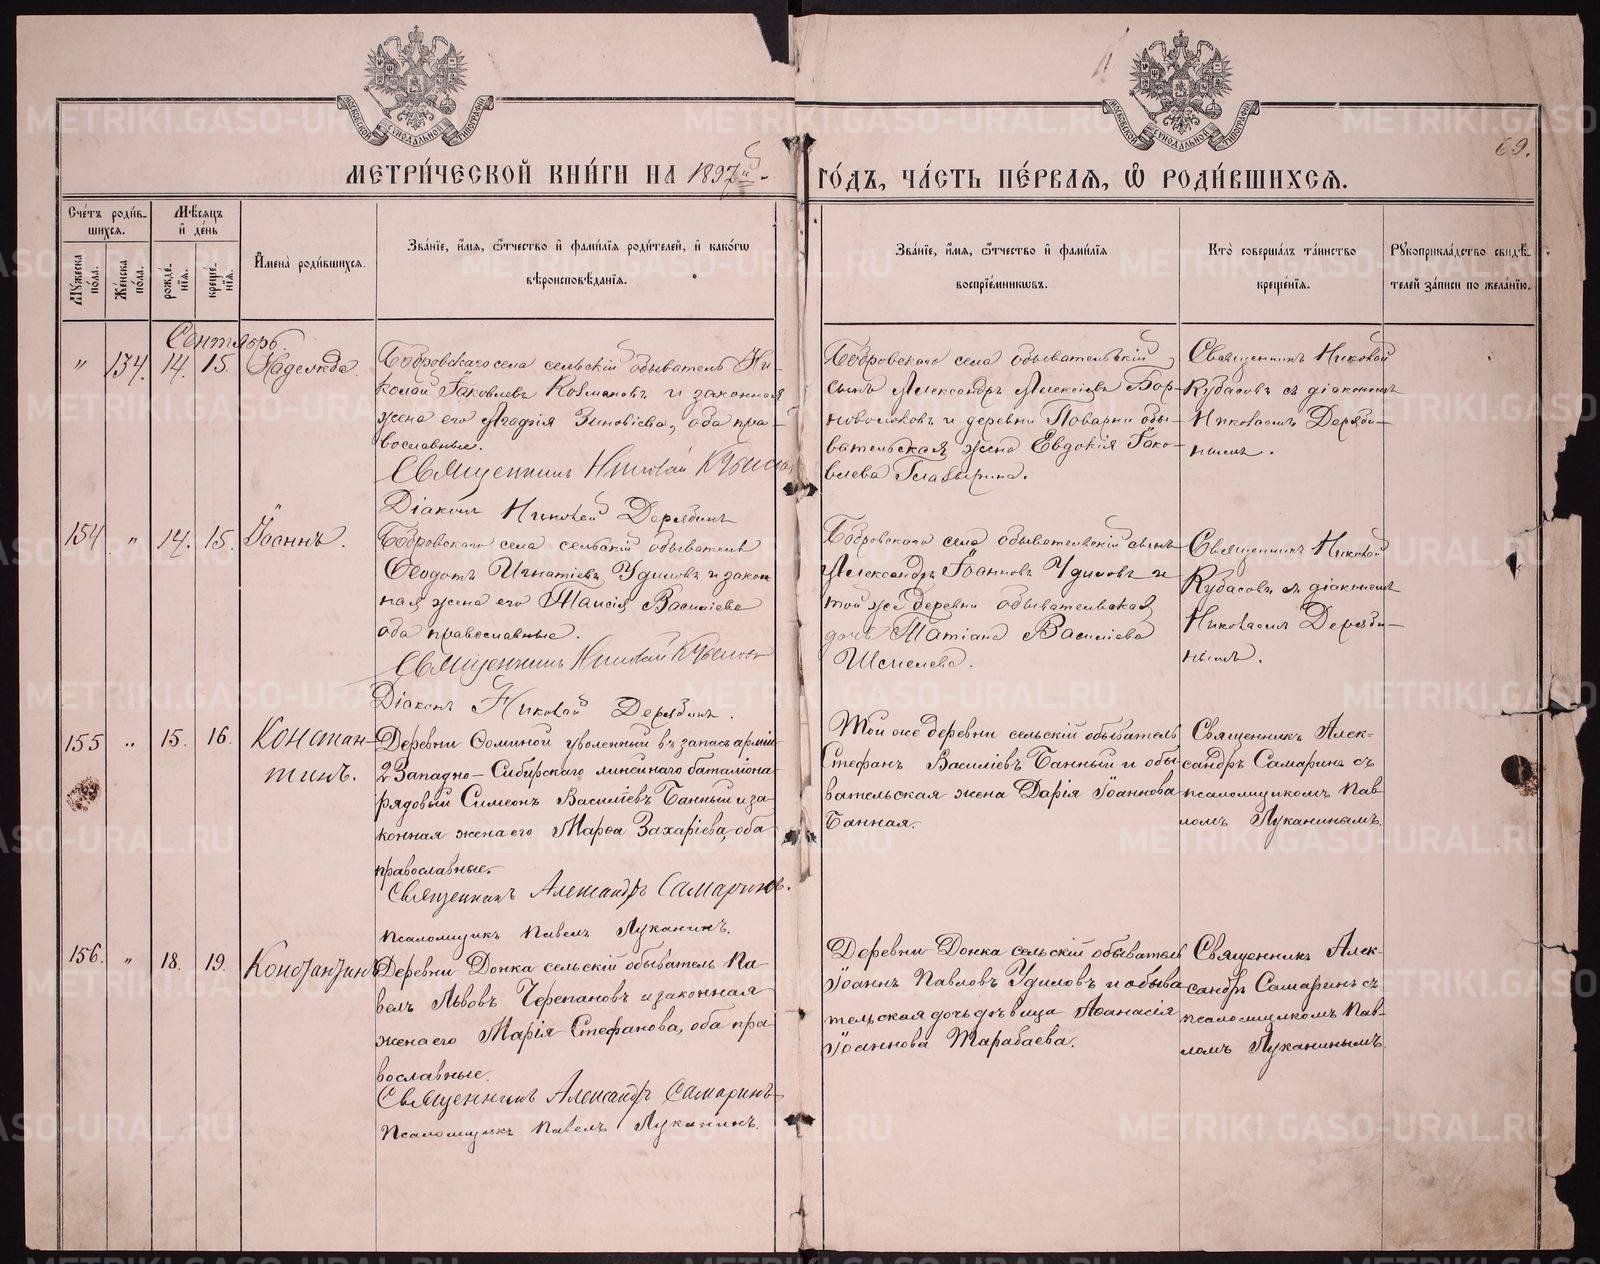 МЕТРИ́ЧЕСКОЙ КНИ́ГИ НА 1897й
ГО́ДЪ, ЧА́СТЬ ПЕ́РВАЯ, Ѡ РОДИ́ВШИХСЯ.
69.
Сче́тъ роди́в-
шихся.
Му́жеска по́ла.
Же́нска по́ла.
Мѣ́сяцъ и де́нь
рожде́нія.
креще́нія.
Имена̀ роди́вшихся.
Зва́ніе, и́мя, о́тчество и фами́лія роди́телей, и како́гѡ
вѣроисповѣ́данія.
Зва́ніе, и́мя, о́тчество и фами́лія
воспріе́мниковъ.
Кто̀ соверша́лъ та́инство
креще́нія.
Рукоприкла́дство свидѣ́-
телей за́писи по жела́нію.
Сентябрь.
" 134. 14. 15. Надежда.
Бобровскаго села сельскій обыватель Ни-
колай Іаковлевъ и законная
жена его Агафія Зиновіева, оба пра-
вославные.
Священникъ Николай
Діаконъ Николай Дерябинъ
Бобровскаго села обывательскій
сынъ Александръ Алексіевъ Бор-
новолоковъ и деревни Поварни обы-
вательская жена Евдокія Іако-
влева
Священникъ Николай
Кубасовъ съ діакономъ
Николаемъ Деряби-
нымъ.
154 " 14. 15. Іоаннъ.
Бобровскаго села сельскій обыватель
Ѳеодотъ Игнатіевъ Удиловъ и закон
ная жена его Таисія Василіева
оба православные.
Священникъ Николай
Діаконъ Николай Дерябинъ.
Бобровскаго села обывательскій сынъ
Александръ Іоанновъ Удиловъ и
той же деревни обывательская
дочь Татіана Василіева
Шмелева.
Священникъ Николай
Кубасовъ съ діакономъ
Николаемъ Деряби-
нымъ.
155 " 15. 16. Констан-
тинъ.
Деревни Ѳоминой уволенный въ запасъ арміи
2 Западно-Сибирскаго линейнаго баталіона
рядовый Симеонъ Василіевъ Банный и за-
конная жена его Марѳа Захаріева, оба
православные.
Священникъ Александръ Самаринъ.
Псаломщикъ Павелъ Луканинъ.
Той же деревни сельскій обыватель
Стефанъ Василіевъ Банный и обы-
вательская жена Дарія Іоаннова
Банная.
Священникъ Алек-
сандръ Самаринъ съ
псаломщикомъ Пав-
ломъ Луканинымъ.
156. " 18. 19. Константинъ
Деревни Донка сельскій обыватель Па-
велъ Львовъ Черепановъ и законная
жена его Марія Стефанова, оба пра-
вославные.
Священникъ Александръ Самаринъ
Псаломщикъ Павелъ Луканинъ.
Деревни Донка сельскій обыватель
Іоаннъ Павловъ Удиловъ и обыва
тельская дочь дѣвица Аѳанасія
Іоаннова Тарабаева.
Священникъ Алек-
сандръ Самаринъ съ
псаломщикомъ Пав-
ломъ Луканинымъ.
METRIKI.GASO-URAL.RU